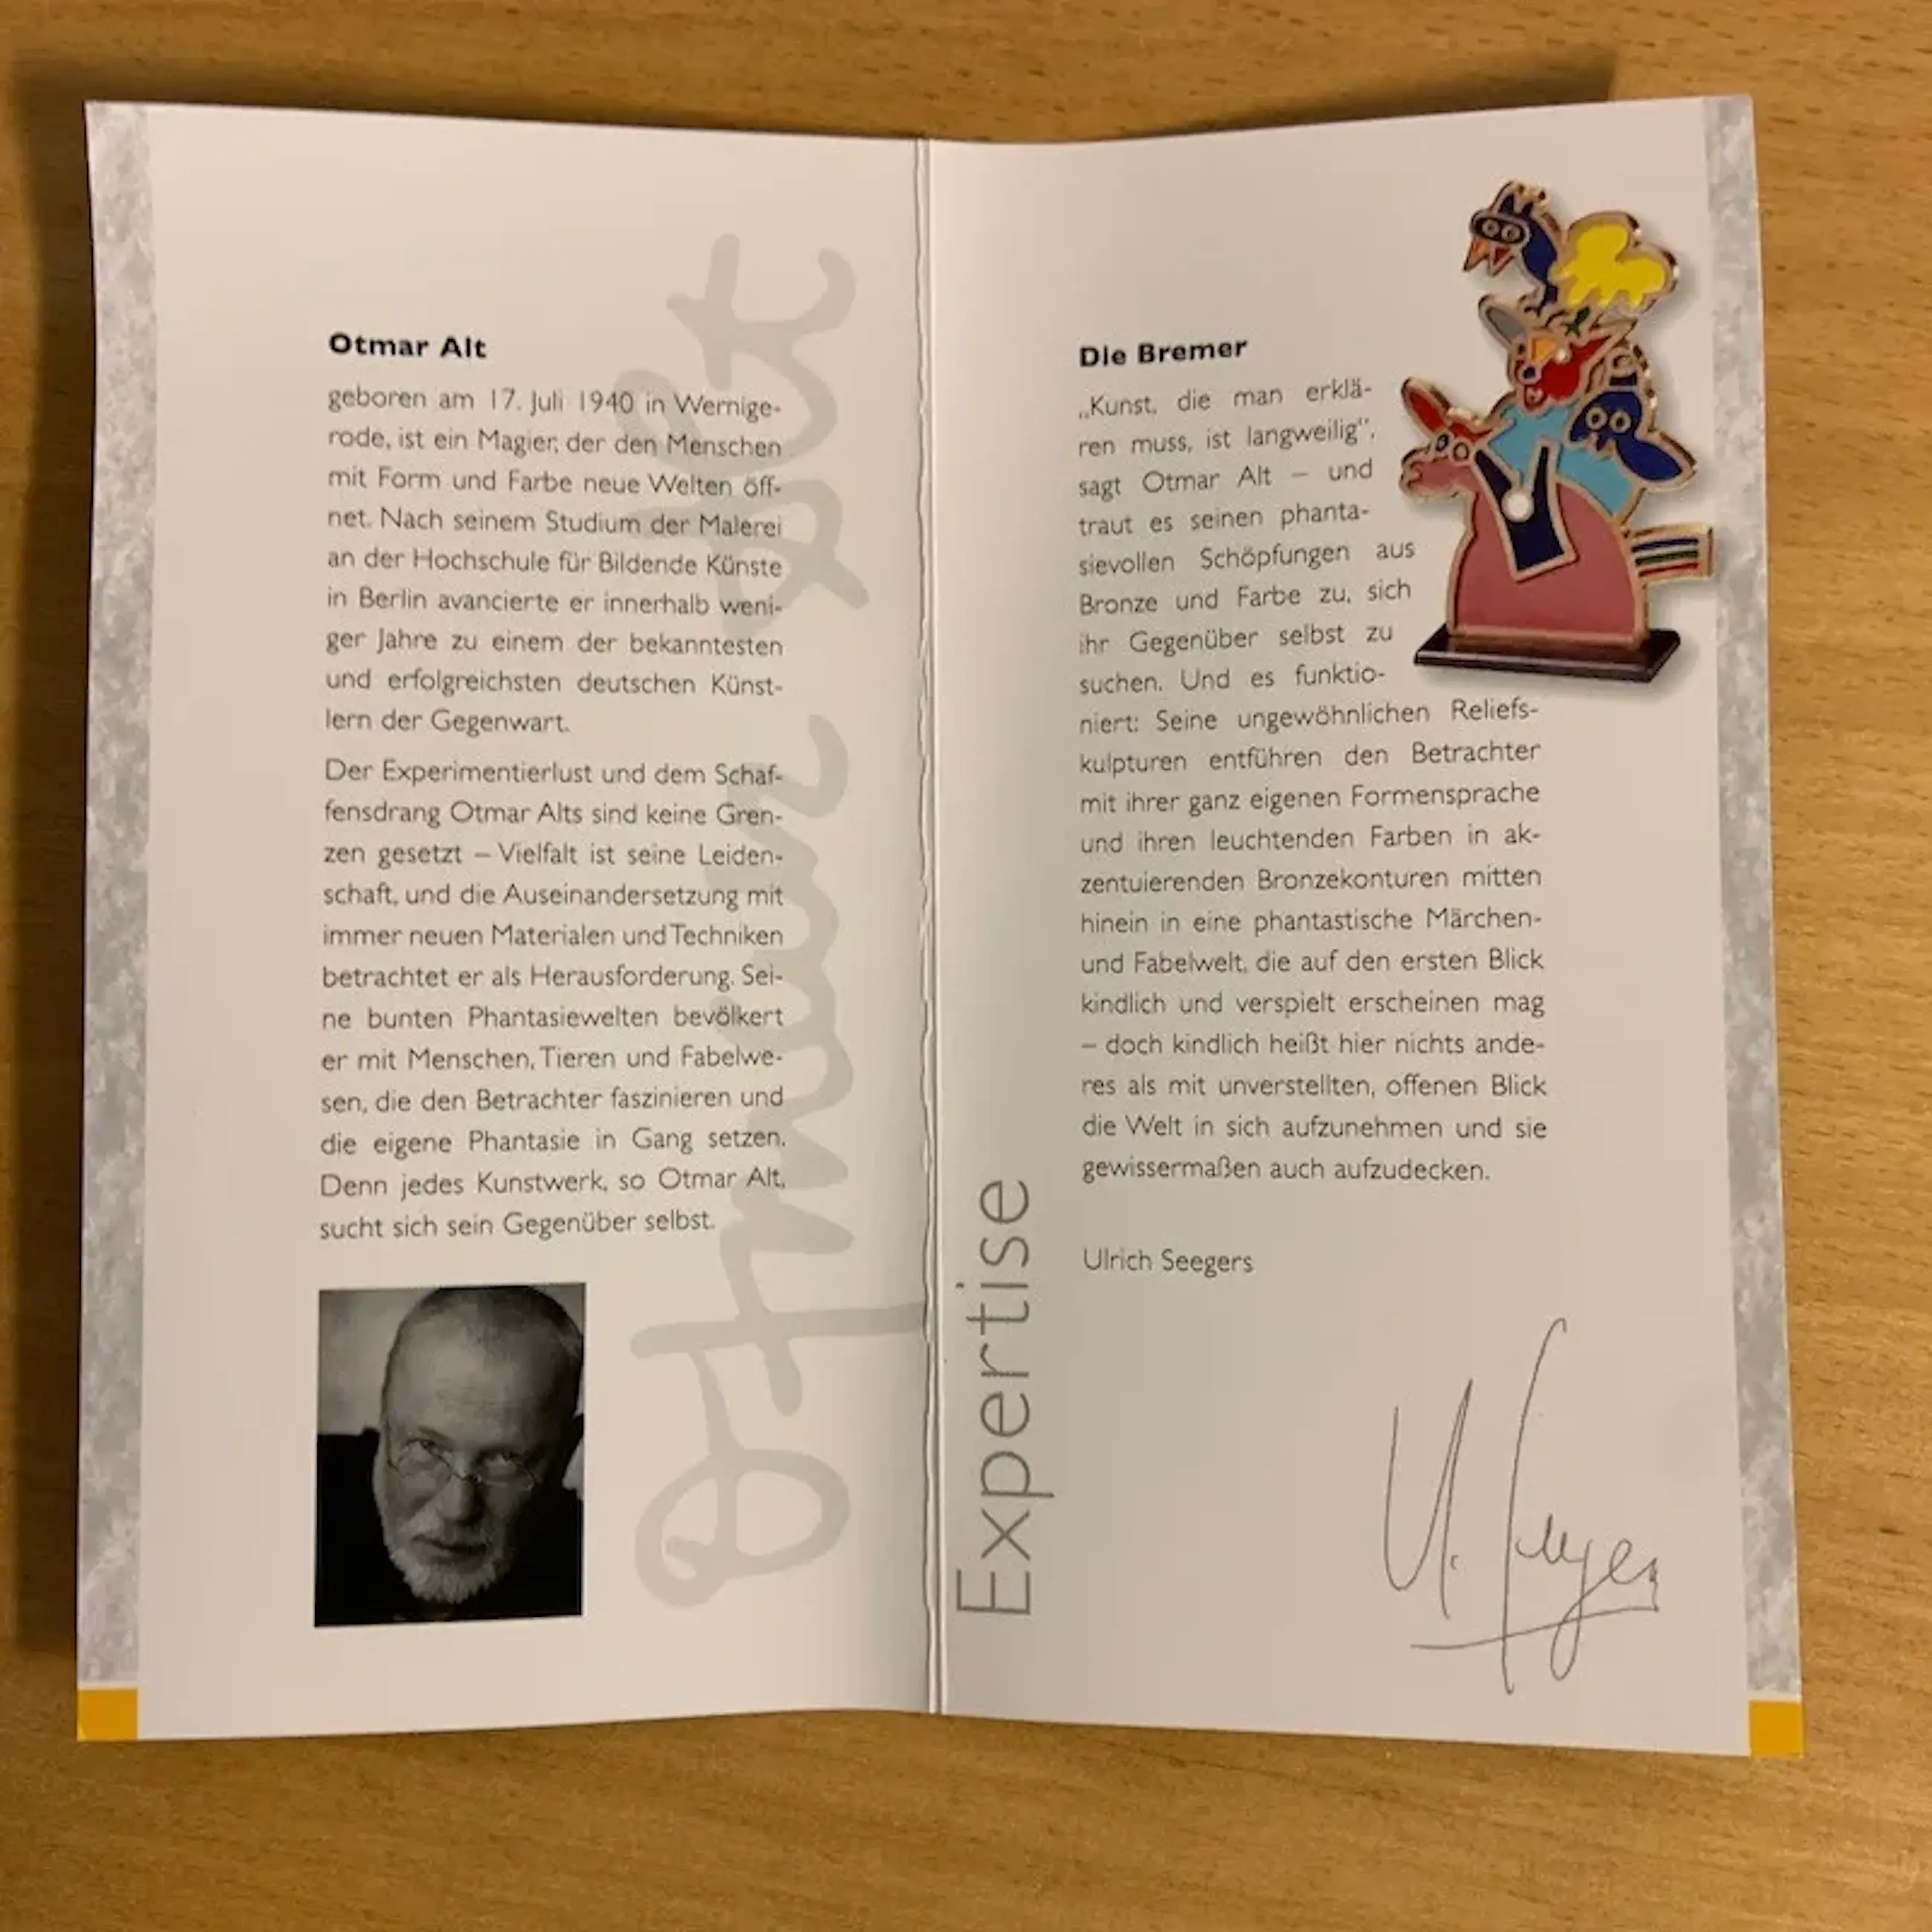 Otmar Alt
geboren am 17. Juli 1940 in Wernige-
rode, ist ein Magier, der den Menschen
mit Form und Farbe neue Welten öff-
net. Nach seinem Studium der Malerei
an der Hochschule für Bildende Künste
in Berlin avancierte er innerhalb weni-
ger Jahre zu einem der bekanntesten
und erfolgreichsten deutschen Künst-
lern der Gegenwart.
Der Experimentierlust und dem Schaf-
fensdrang Otmar Alts sind keine Gren-
zen gesetzt – Vielfalt ist seine Leiden-
schaft, und die Auseinandersetzung mit
immer neuen Materialen und Techniken
betrachtet er als Herausforderung. Sei-
ne bunten Phantasiewelten bevölkert
er mit Menschen, Tieren und Fabelwe-
sen, die den Betrachter faszinieren und
die eigene Phantasie in Gang setzen.
Denn jedes Kunstwerk, so Otmar Alt,
sucht sich sein Gegenüber selbst.
Otmar Alt
Expertise
Die Bremer
„Kunst, die man erklä-
ren muss, ist langweilig",
sagt Otmar Alt – und
traut es seinen phanta-
sievollen Schöpfungen aus
Bronze und Farbe zu, sich
ihr Gegenüber selbst zu
suchen. Und es funktio-
niert: Seine ungewöhnlichen Reliefs-
kulpturen entführen den Betrachter
mit ihrer ganz eigenen Formensprache
und ihren leuchtenden Farben in ak-
zentuierenden Bronzekonturen mitten
hinein in eine phantastische Märchen-
und Fabelwelt, die auf den ersten Blick
kindlich und verspielt erscheinen mag
– doch kindlich heißt hier nichts ande-
res als mit unverstellten, offenen Blick
die Welt in sich aufzunehmen und sie
gewissermaßen auch aufzudecken.
Ulrich Seegers
U. Seegers